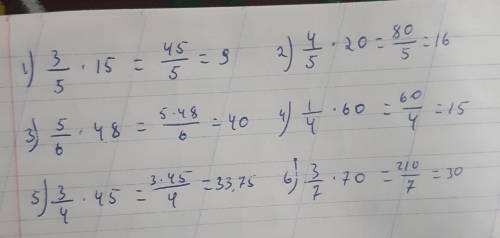 1) 3/5 · 15 = 45/5 = 9
2) 4/5 · 20 = 80/5 = 16
3) 5/6 · 48 = 5·48/6 = 40
4) 1/4 · 60 = 60/4 = 15
5) 3/4 · 45 = 3·45/4 = 33,75
6) 3/7 · 70 = 210/7 = 30